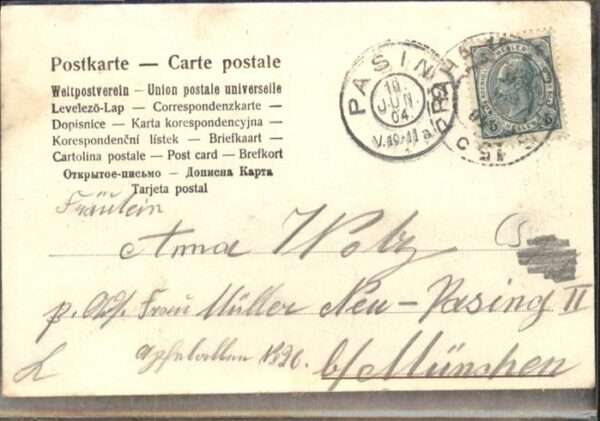 Postkarte — Carte postale
Weltpostverein – Union postale universelle
Levelező-Lap — Correspondenzkarte —
Dopisnice — Karta korespondencyjna —
Korespondenční lístek — Briefkaart —
Cartolina postale — Post card — Brefkort
Открытое-письмо — Дописна Карта
Tarjeta postal
PASING
10.
JUN.
04.
V.10-11
5
HELLER
Fräulein
Anna Wolz
p. Frau Müller Neu-Pasing II
b/München